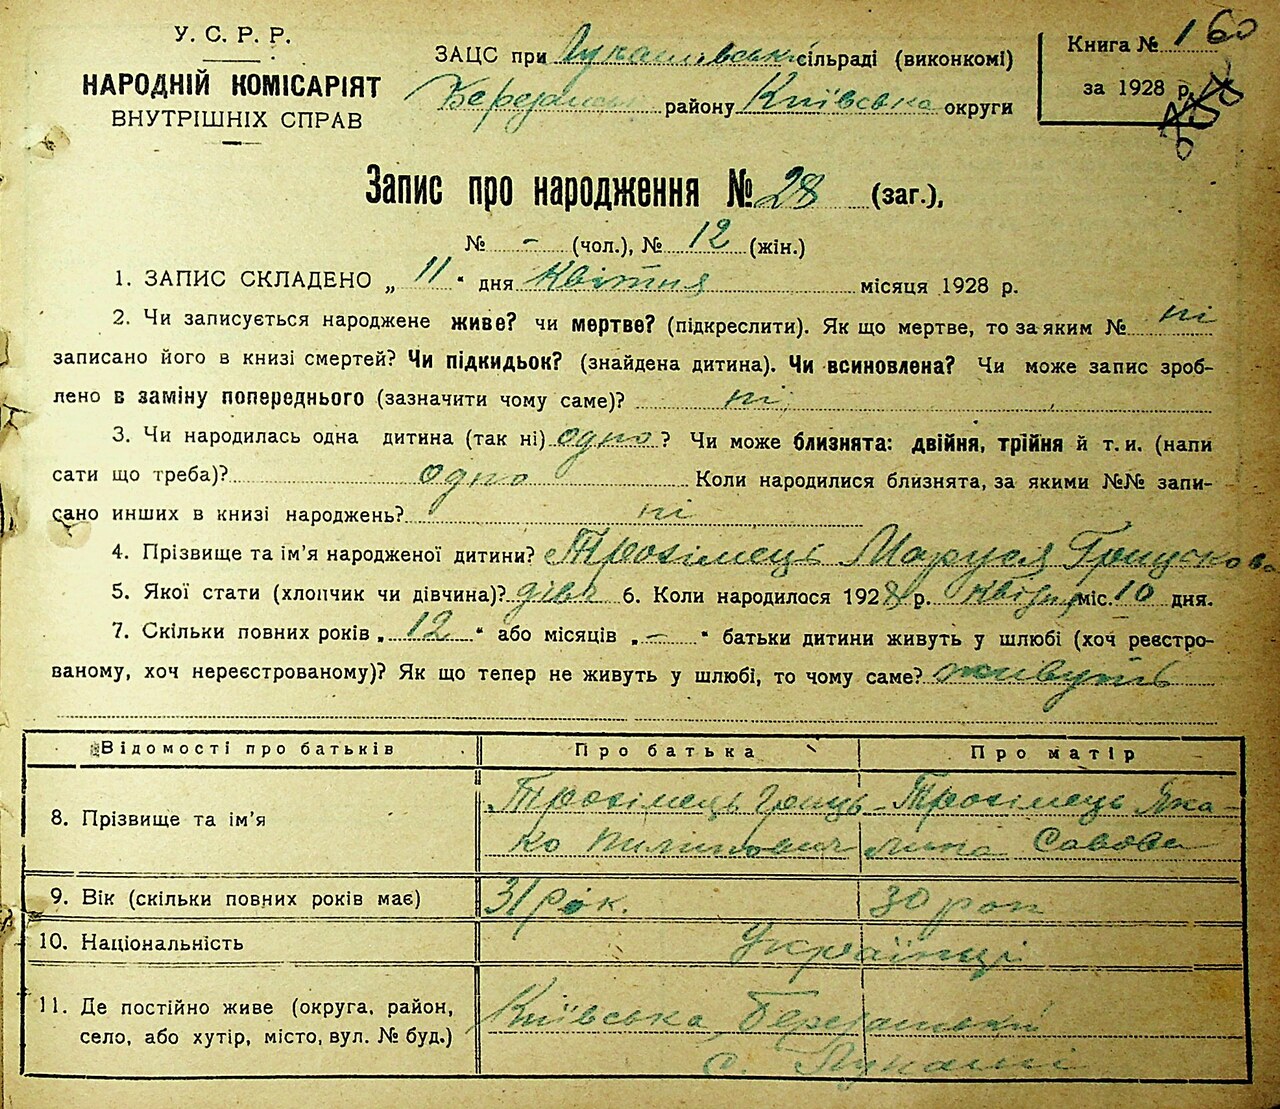 У. С. Р. Р.
НАРОДНІЙ КОМІСАРІЯТ
ВНУТРІШНІХ СПРАВ
ЗАЦС при Лукашівські сільраді (виконкомі)
Березанськ району Київська округи
Книга № 1 60
за 1928 р.
Запис про народження № 28 (заг.),
№ - (чол.), № 12 (жін.)
1. ЗАПИС СКЛАДЕНО „ 11 " дня Квітня місяця 1928 р.
2. Чи записується народжене живе? чи мертве? (підкреслити). Як що мертве, то за яким № ні
записано його в книзі смертей? Чи підкидьок? (знайдена дитина). Чи всиновлена? Чи може запис зроб-
лено в заміну попереднього (зазначити чому саме)? ні
3. Чи народилась одна дитина (так ні) одно ? Чи може близнята: двійня, трійня й т. и. (напи
сати що треба)? одно Коли народилися близнята, за якими №№ запи-
сано инших в книзі народжень? ні
4. Прізвище та ім'я народженої дитини? Трохімець Маруся Грицькова
5. Якої стати (хлопчик чи дівчина)? дівч 6. Коли народилося 1928 р. квітня міс. 10 дня.
7. Скільки повних років „ 12 " або місяців „ - " батьки дитини живуть у шлюбі (хоч реєстро-
ваному, хоч нереєстрованому)? Як що тепер не живуть у шлюбі, то чому саме? живуть
Відомості про батьків Про батька Про матір
8. Прізвище та ім'я Трохімець Гриць- Трохімець Яки-
ко Пилипович лина Савова
9. Вік (скільки повних років має) 31 рік. 30 рок
10. Національність Українці
11. Де постійно живе (округа, район, Київська, Березанський
село, або хутір, місто, вул. № буд.) с. Лукаші